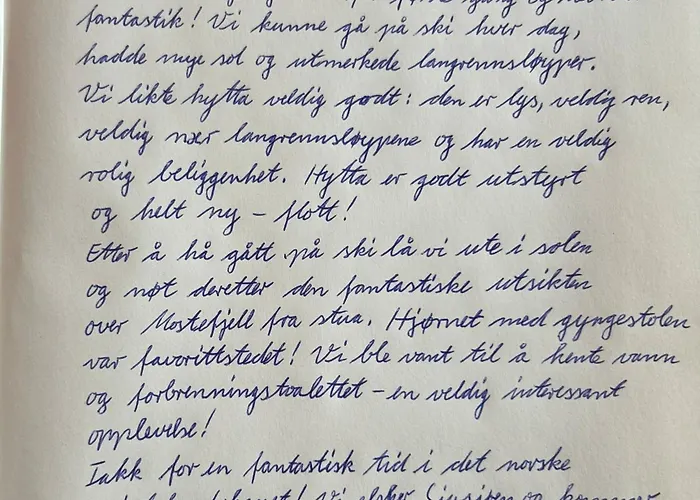 fantastik! Vi kunne gå på ski hver dag,
hadde mye sol og utmerkede langrennsløyper.
Vi likte hytta veldig godt: den er lys, veldig ren,
veldig nær langrennsløypene og har en veldig
rolig beliggenhet. Hytta er godt utstyrt
og helt ny – flott!
Etter å hå gått på ski lå vi ute i solen
og nøt deretter den fantastiske utsikten
over Mostefjell fra stua. Hjørnet med gyngestolen
var favorittstedet! Vi ble vant til å hente vann
og forbrenningstoalettet – en veldig interessant
opplevelse!
Takk for en fantastisk tid i det norske
Vi elsker og kommer